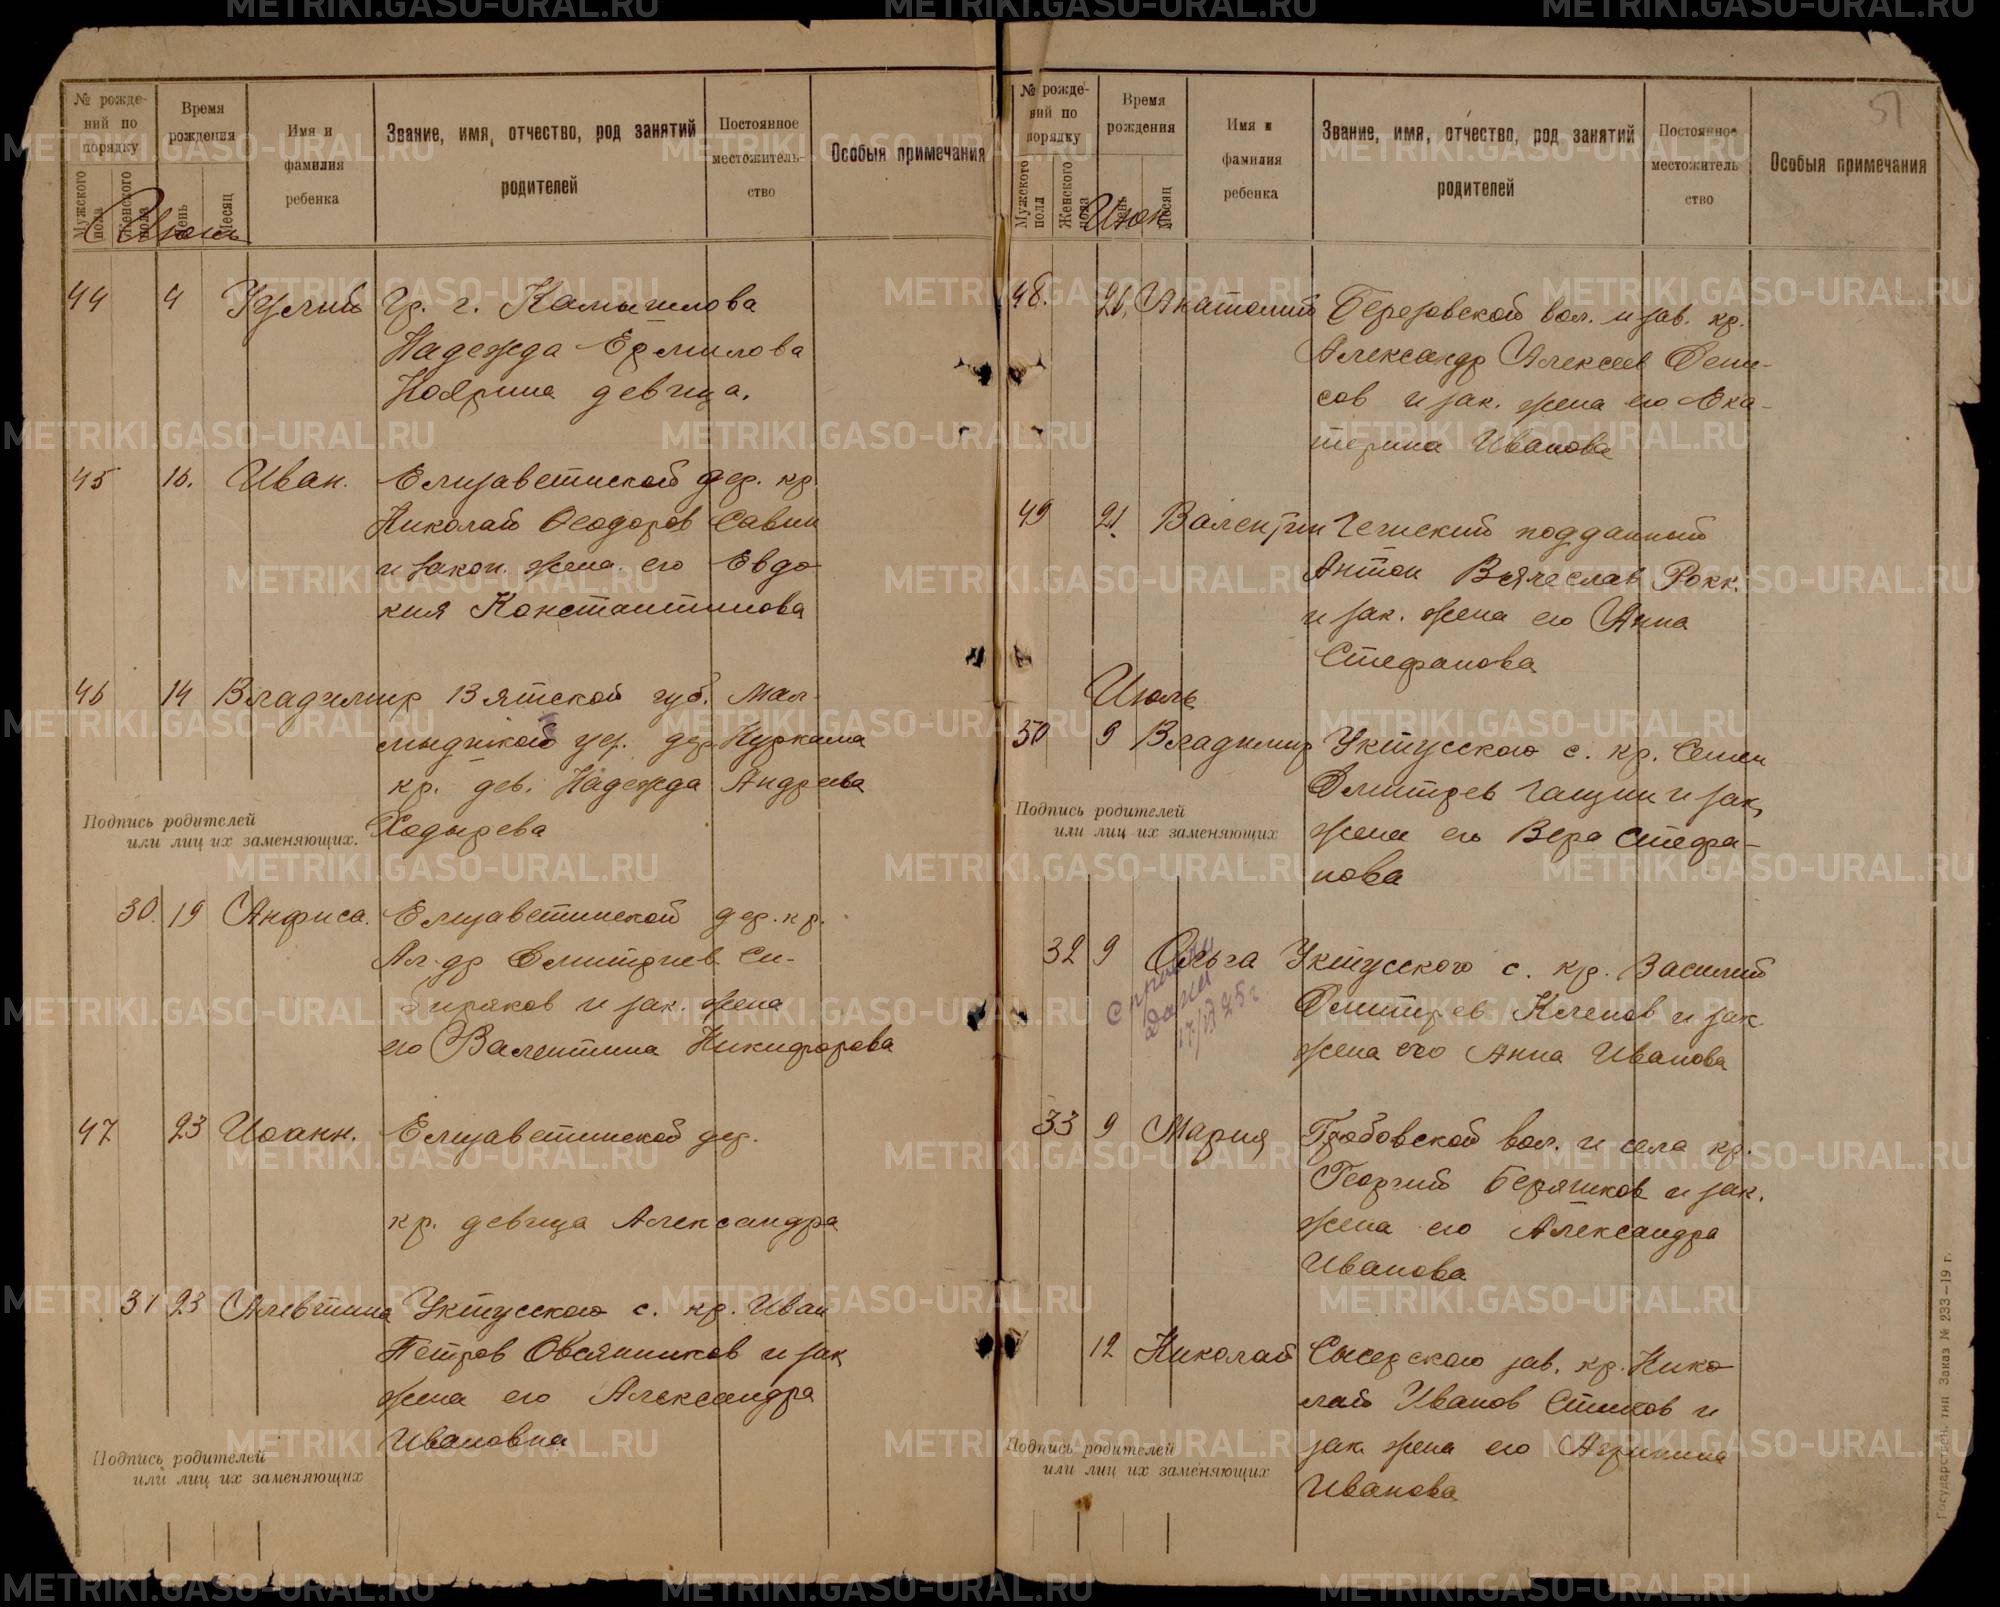 № рожде-
ний по
порядку
Время
рождения
Имя и
фамилия
ребенка
Звание, имя, отчество, род занятий
родителей
Постоянное
местожитель-
ство
Особыя примечания
Мужского пола
Женского пола
День
Месяц
Июнь
44 4 Гр. г. Камышлова
Надежда Ермилова
девица.
45 10. Иван. Елизаветинской дер. кр.
Николай Феодоров Савин
и закон. жена его Евдо
кия Константинова
46 14 Владимир Вятской губ. Мал-
мыжской уез. дер.
кр. дев. Надежда Андреева
Ходырева
Подпись родителей
или лиц их заменяющих.
30. 19 Анфиса. Елизаветинской дер. кр.
Ал-др Дмитриев Си-
биряков и зак. жена
его Валентина Никифорова
47 23 Иоанн. Елизаветинской дер.
кр. девица Александра
31 23 Алевтина Уктусского с. кр. Иван
Петров Овсянников и зак
жена его Александра
Ивановна
Подпись родителей
или лиц их заменяющих
51
№ рожде-
ний по
порядку
Время
рождения
Имя и
фамилия
ребенка
Звание, имя, отчество, род занятий
родителей
Постоянное
местожитель
ство
Особыя примечания
Мужского пола
Женского пола
День
Месяц
Июн
48. 20. Анатолий Березовской вол. и зав. кр.
Александр Алексеев Дени-
сов и зак. жена его Ека-
терина Иванова
49 21. Валентин Чешский подданный
Антон Вячеслав Рокк.
и зак. жена его Анна
Стефанова
Июль
50 9 Владимир Уктусского с. кр. Семен
Дмитрев и зак,
жена его Вера Стефа-
нова
Подпись родителей
или лиц их заменяющих
32 9 Ольга Уктусского с. кр. Василий
Дмитрев Кленов и зак
жена его Анна Иванова
33 9 Мария Гробовской вол. и села кр.
Георгий и зак.
жена его Александра
Иванова
12 Николай Сысерского зав. кр. Нико-
лай Иванов и
зак. жена его Агрипина
Иванова
Подпись родителей
или лиц их заменяющих
Государствен. тип. Заказ № 233—19 г.
METRIKI.GASO-URAL.RU